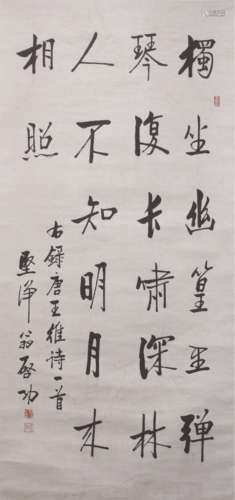 獨坐幽篁里彈
琴復长嘯深林
人不知明月来
相照
右錄唐王維诗一首
堅淨翁啟功